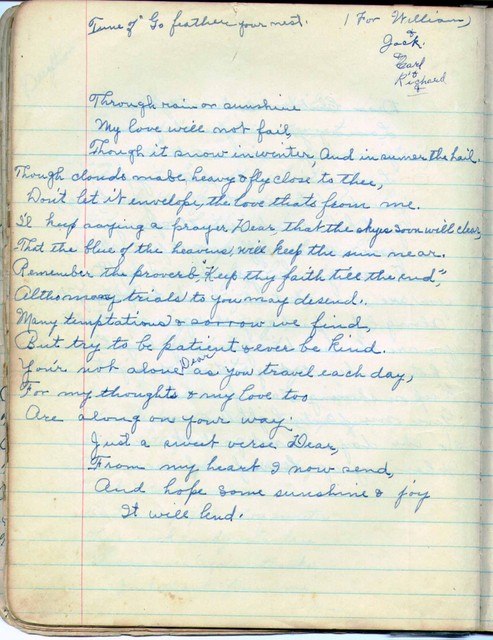 Tune of "Go feather your nest. (For William)
& Jack.
& Earl
& Richard
Through rain or sunshine
My love will not fail,
Though it snow in winter, And in sumer the hail.
Though clouds made heavy & fly close to thee,
Don't let it envelope, the love thats from me.
I'll keep saying a prayer Dear, that the skys soon will clear,
That the blue of the heavens, will keep the sun near.
Remember the proverb, "Keep thy faith till the end,"
Altho many trials to you may desend.
Many temptations & sorrow we find,
But try to be patient & ever be kind.
Your'e not alone Dear as you travel each day,
For my thoughts & my love too
Are along on your way.
Just a sweet verse Dear,
From my heart I now send,
And hope some sunshine & joy
It will lend.